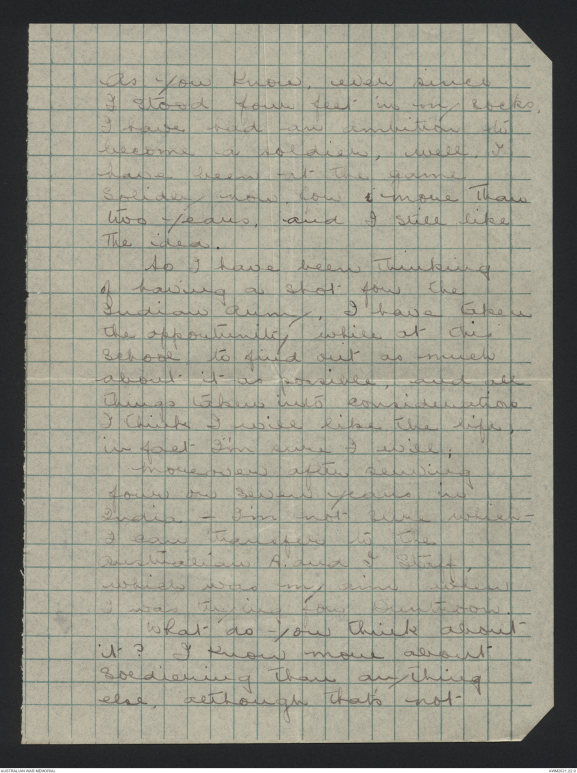 As you know, ever since
I stood four feet in my socks,
I have had an ambition to
become a soldier, well, I
have been at the game
solidey now for & more than
two years, and I still like
the idea.
So I have been thinking
of having a shot for the
Indian Army, I have taken
the opportunity while at this
school to find out as much
about it as possible, and all
things taken into consideration
I think I will like the life,
in fact I'm sure I will;
moreover after serving
four or seven years in
India – I'm not sure which –
I can transfer to the
Australian A. and I Staff,
which was my aim when
I was trying for Duntroon.
What do you think about
it? I know more about
soldiering than anything
else, although that's not
AUSTRALIAN WAR MEMORIAL